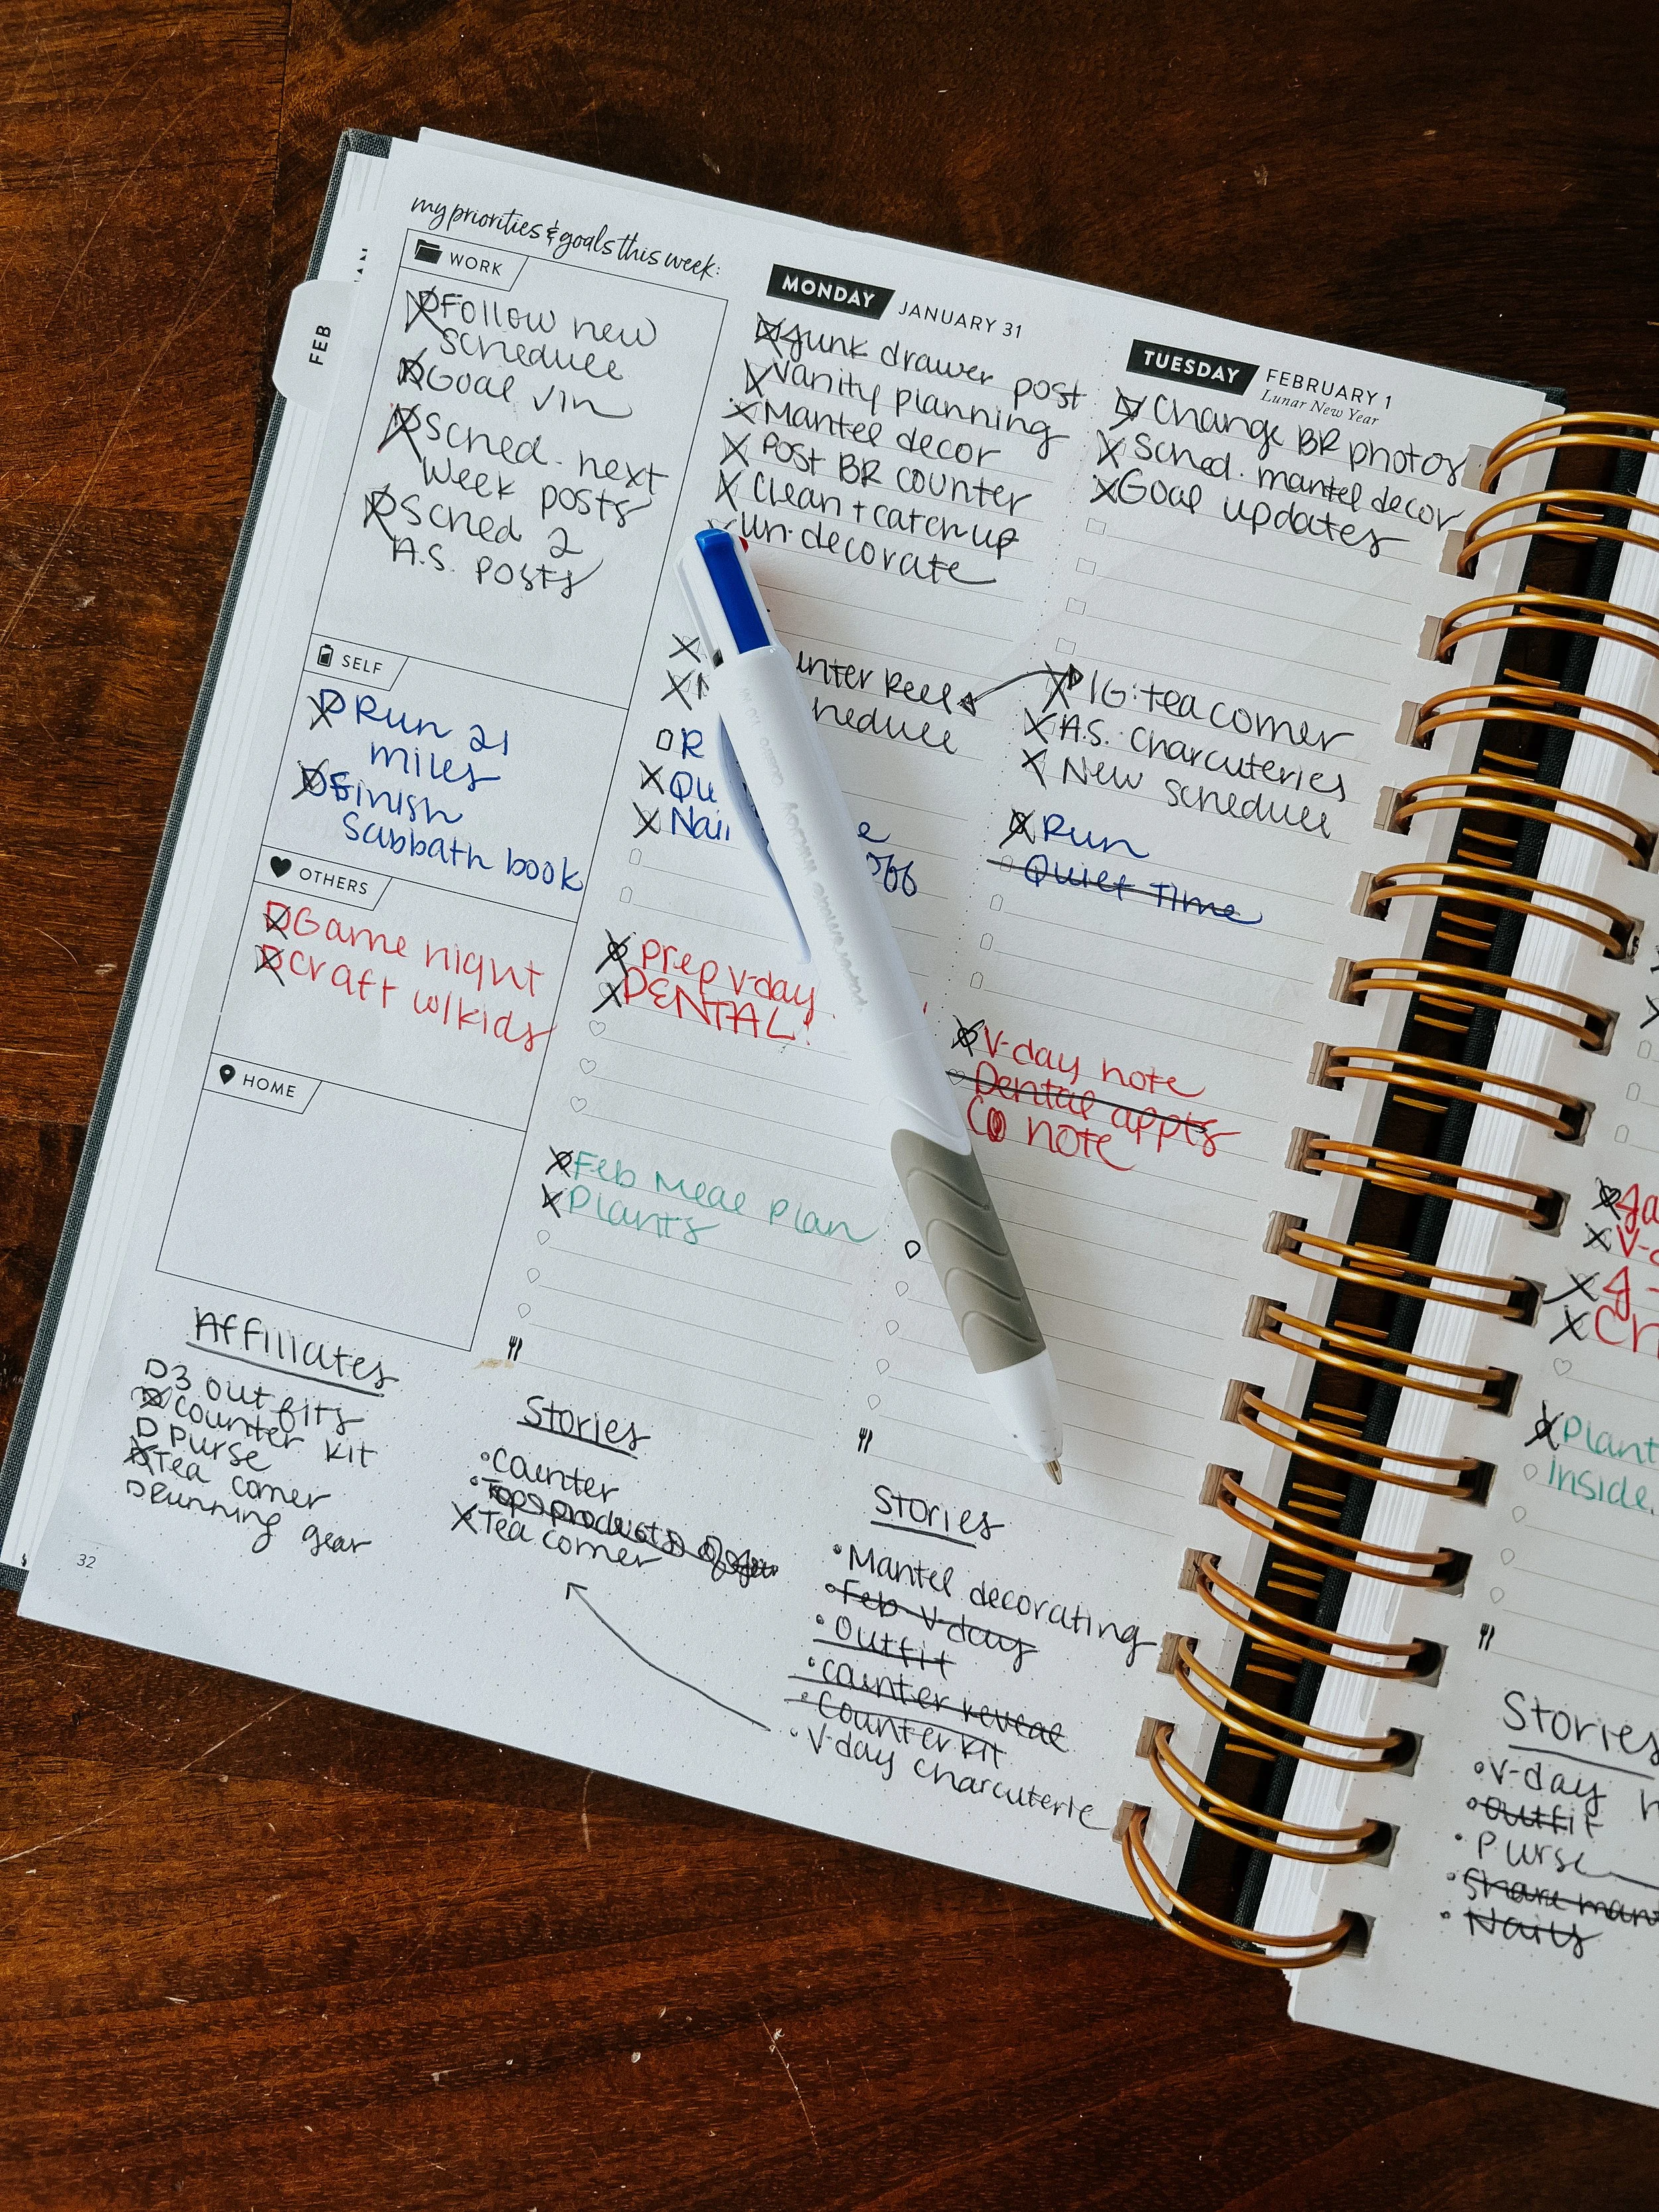 my priorities & goals this week:
WORK
Follow new
schedule
Goal
Sched. next
week posts
Sched 2
A.S. posts
SELF
Run 21
miles
Finish
Sabbath book
OTHERS
Game night
craft w/kids
HOME
Affiliates
3 outfits
Counter kit
Purse
Tea corner
Running gear
32
FEB
MONDAY JANUARY 31
Junk drawer post
Vanity planning
Mantel decor
Post BR counter
Clean + catch up
un-decorate
Reel
prep v-day
DENTAL!
Feb Meal Plan
Plants
Stories
Counter
Tea corner
TUESDAY FEBRUARY 1
Lunar New Year
Change BR photos
Sched. mantel decor
Goal updates
IG: tea corner
A.S. charcuteries
New schedule
Run
Quiet Time
V-day note
Dental appts
note
Stories
Mantel decorating
Feb V-day
Outfit
counter reveal
Counter kit
V-day charcuterie
inside
Stories
V-day
Outfit
Purse
Nails